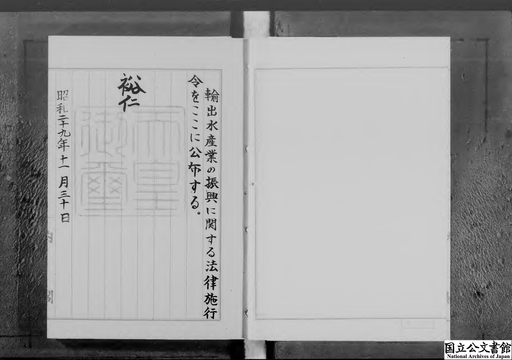 輸出水産業の振興に関する法律施行
令をここに公布する。
裕仁
天皇
御璽
昭和二十九年十一月三十日
国立公文書館
National Archives of Japan